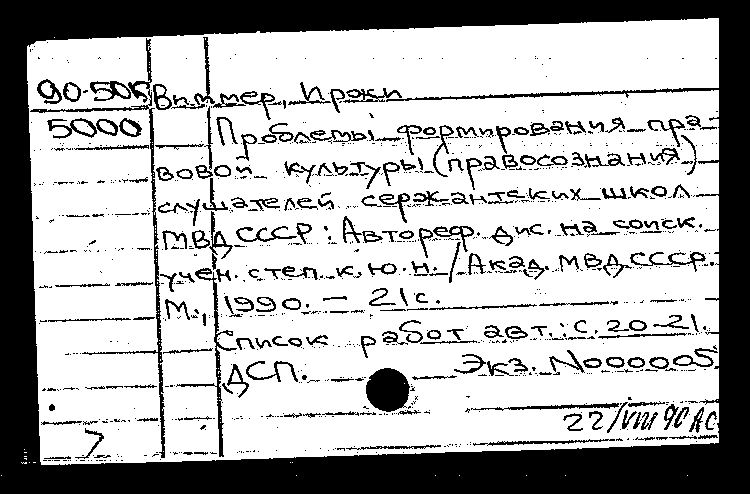 90-505 Виммер, Иржи
5000 Проблемы формирования пра-
вовой культуры (правосознания)
слушателей сержантских школ
МВД СССР: Автореф. дис. на соиск.
учен. степ. к.ю.н. / Акад. МВД СССР.
М., 1990. – 21 с.
Список работ авт.: с. 20-21.
ДСП. Экз. N000005
22/VIII 90 АС